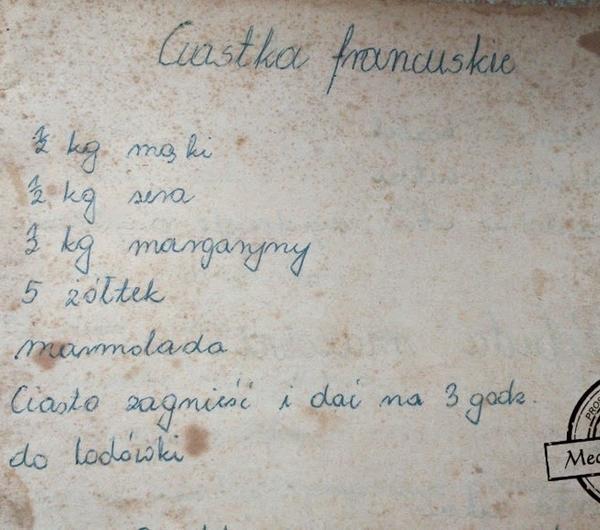 Ciastka francuskie
½ kg mąki
½ kg sera
½ kg margaryny
5 żółtek
marmolada
Ciasto zagnieść i dać na 3 godz.
do lodówki